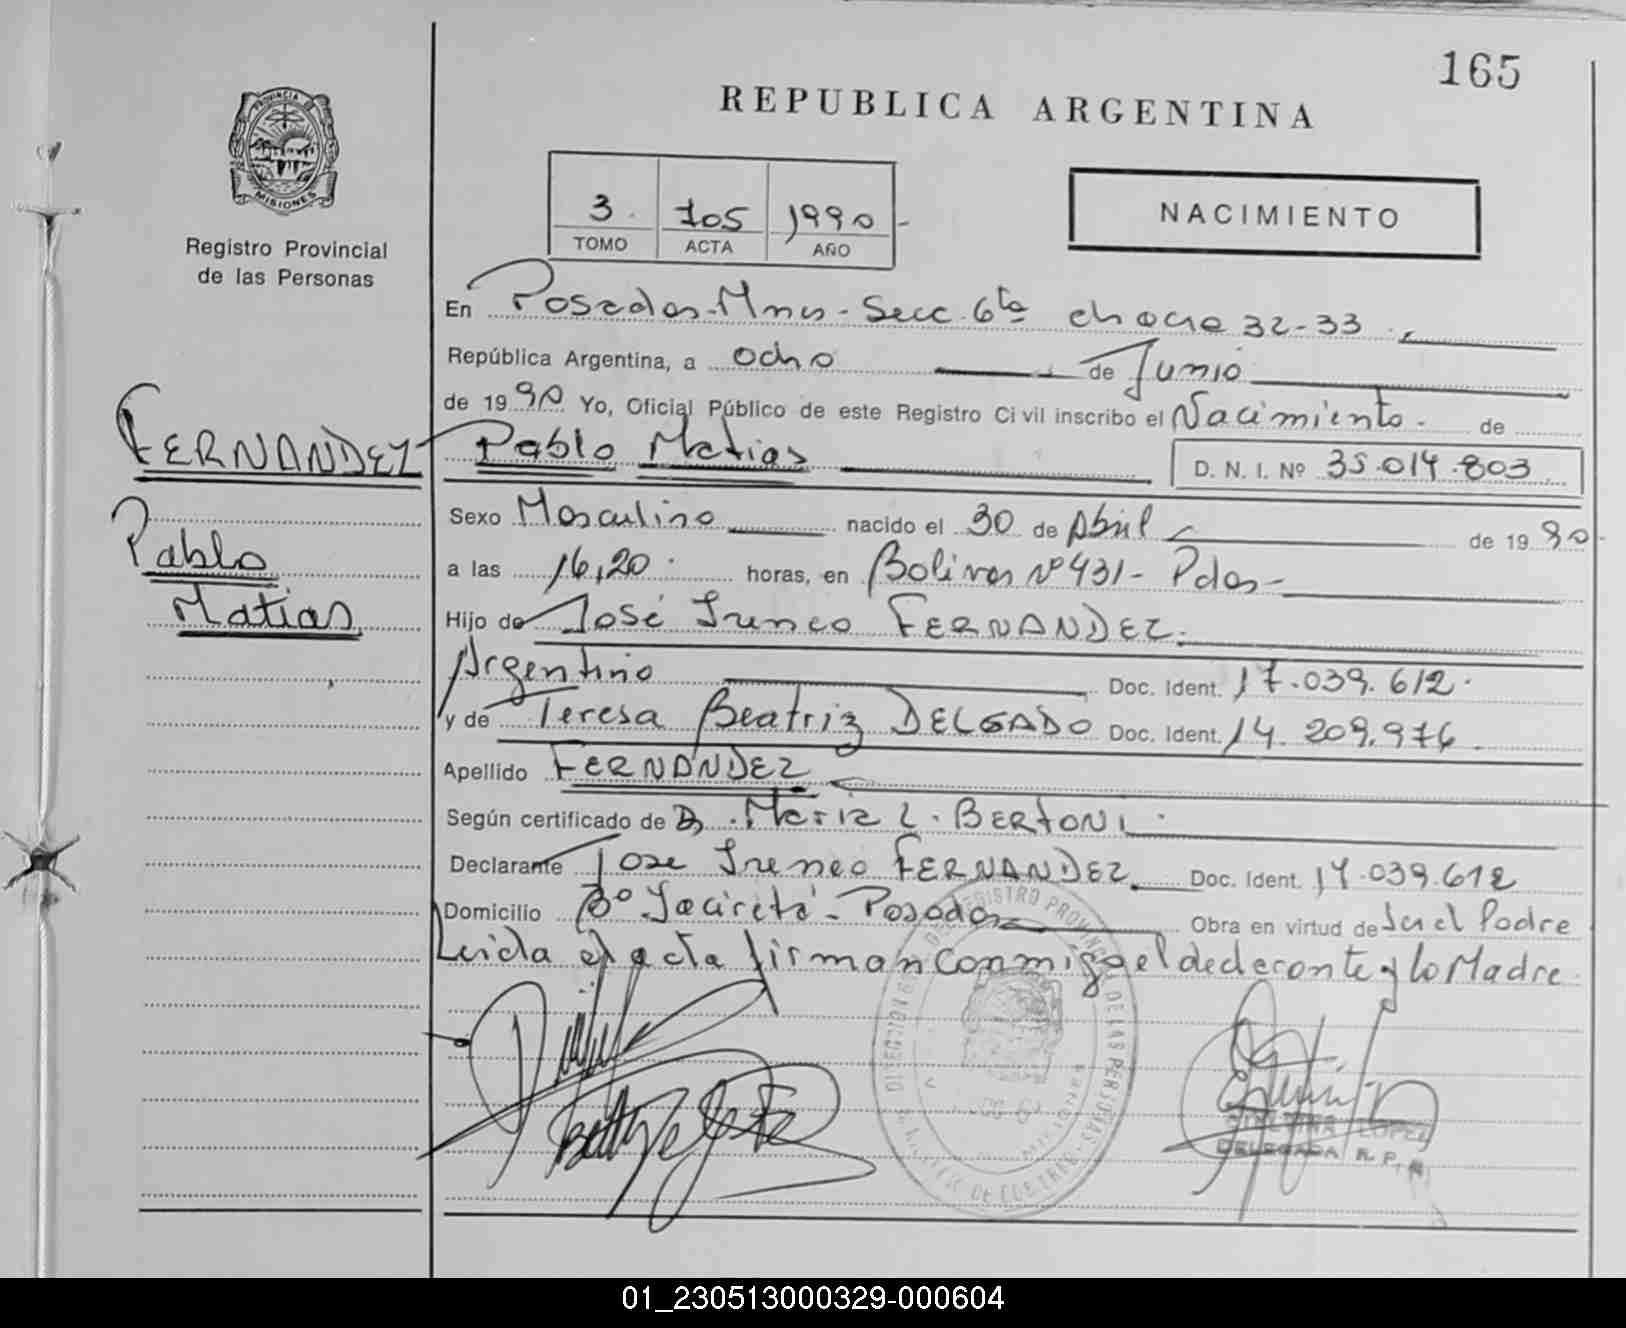 165
REPUBLICA ARGENTINA
PROVINCIA DE
MISIONES
Registro Provincial
de las Personas
3 105 1990
TOMO ACTA AÑO
NACIMIENTO
En Posadas-Mnes-Secc. 6ta chacra 32-33
República Argentina, a ocho de Junio
de 1990 Yo, Oficial Público de este Registro Civil inscribo el Nacimiento de
FERNANDEZ Pablo Matias D. N. I. Nº 35.014.803
Pablo
Matias
Sexo Masculino nacido el 30 de Abril de 1990
a las 16,20 horas, en Bolivar Nº 431- Pdas-
Hijo de José Ireneo FERNANDEZ.
Argentino Doc. Ident. 17.039.612.
y de Teresa Beatriz DELGADO Doc. Ident. 14.209.976
Apellido FERNANDEZ
Según certificado de D. Maria L. BERTONI
Declarante Jose Ireneo FERNANDEZ Doc. Ident. 17.039.612
Domicilio Bº Yacireta - Posadas Obra en virtud de Ser el Padre
Leida el acta firman conmigo el declarante y la Madre.
REGISTRO PROVINCIAL DE LAS PERSONAS
MISIONES
LOPEZ
DELEGADA R. P.
01_230513000329-000604